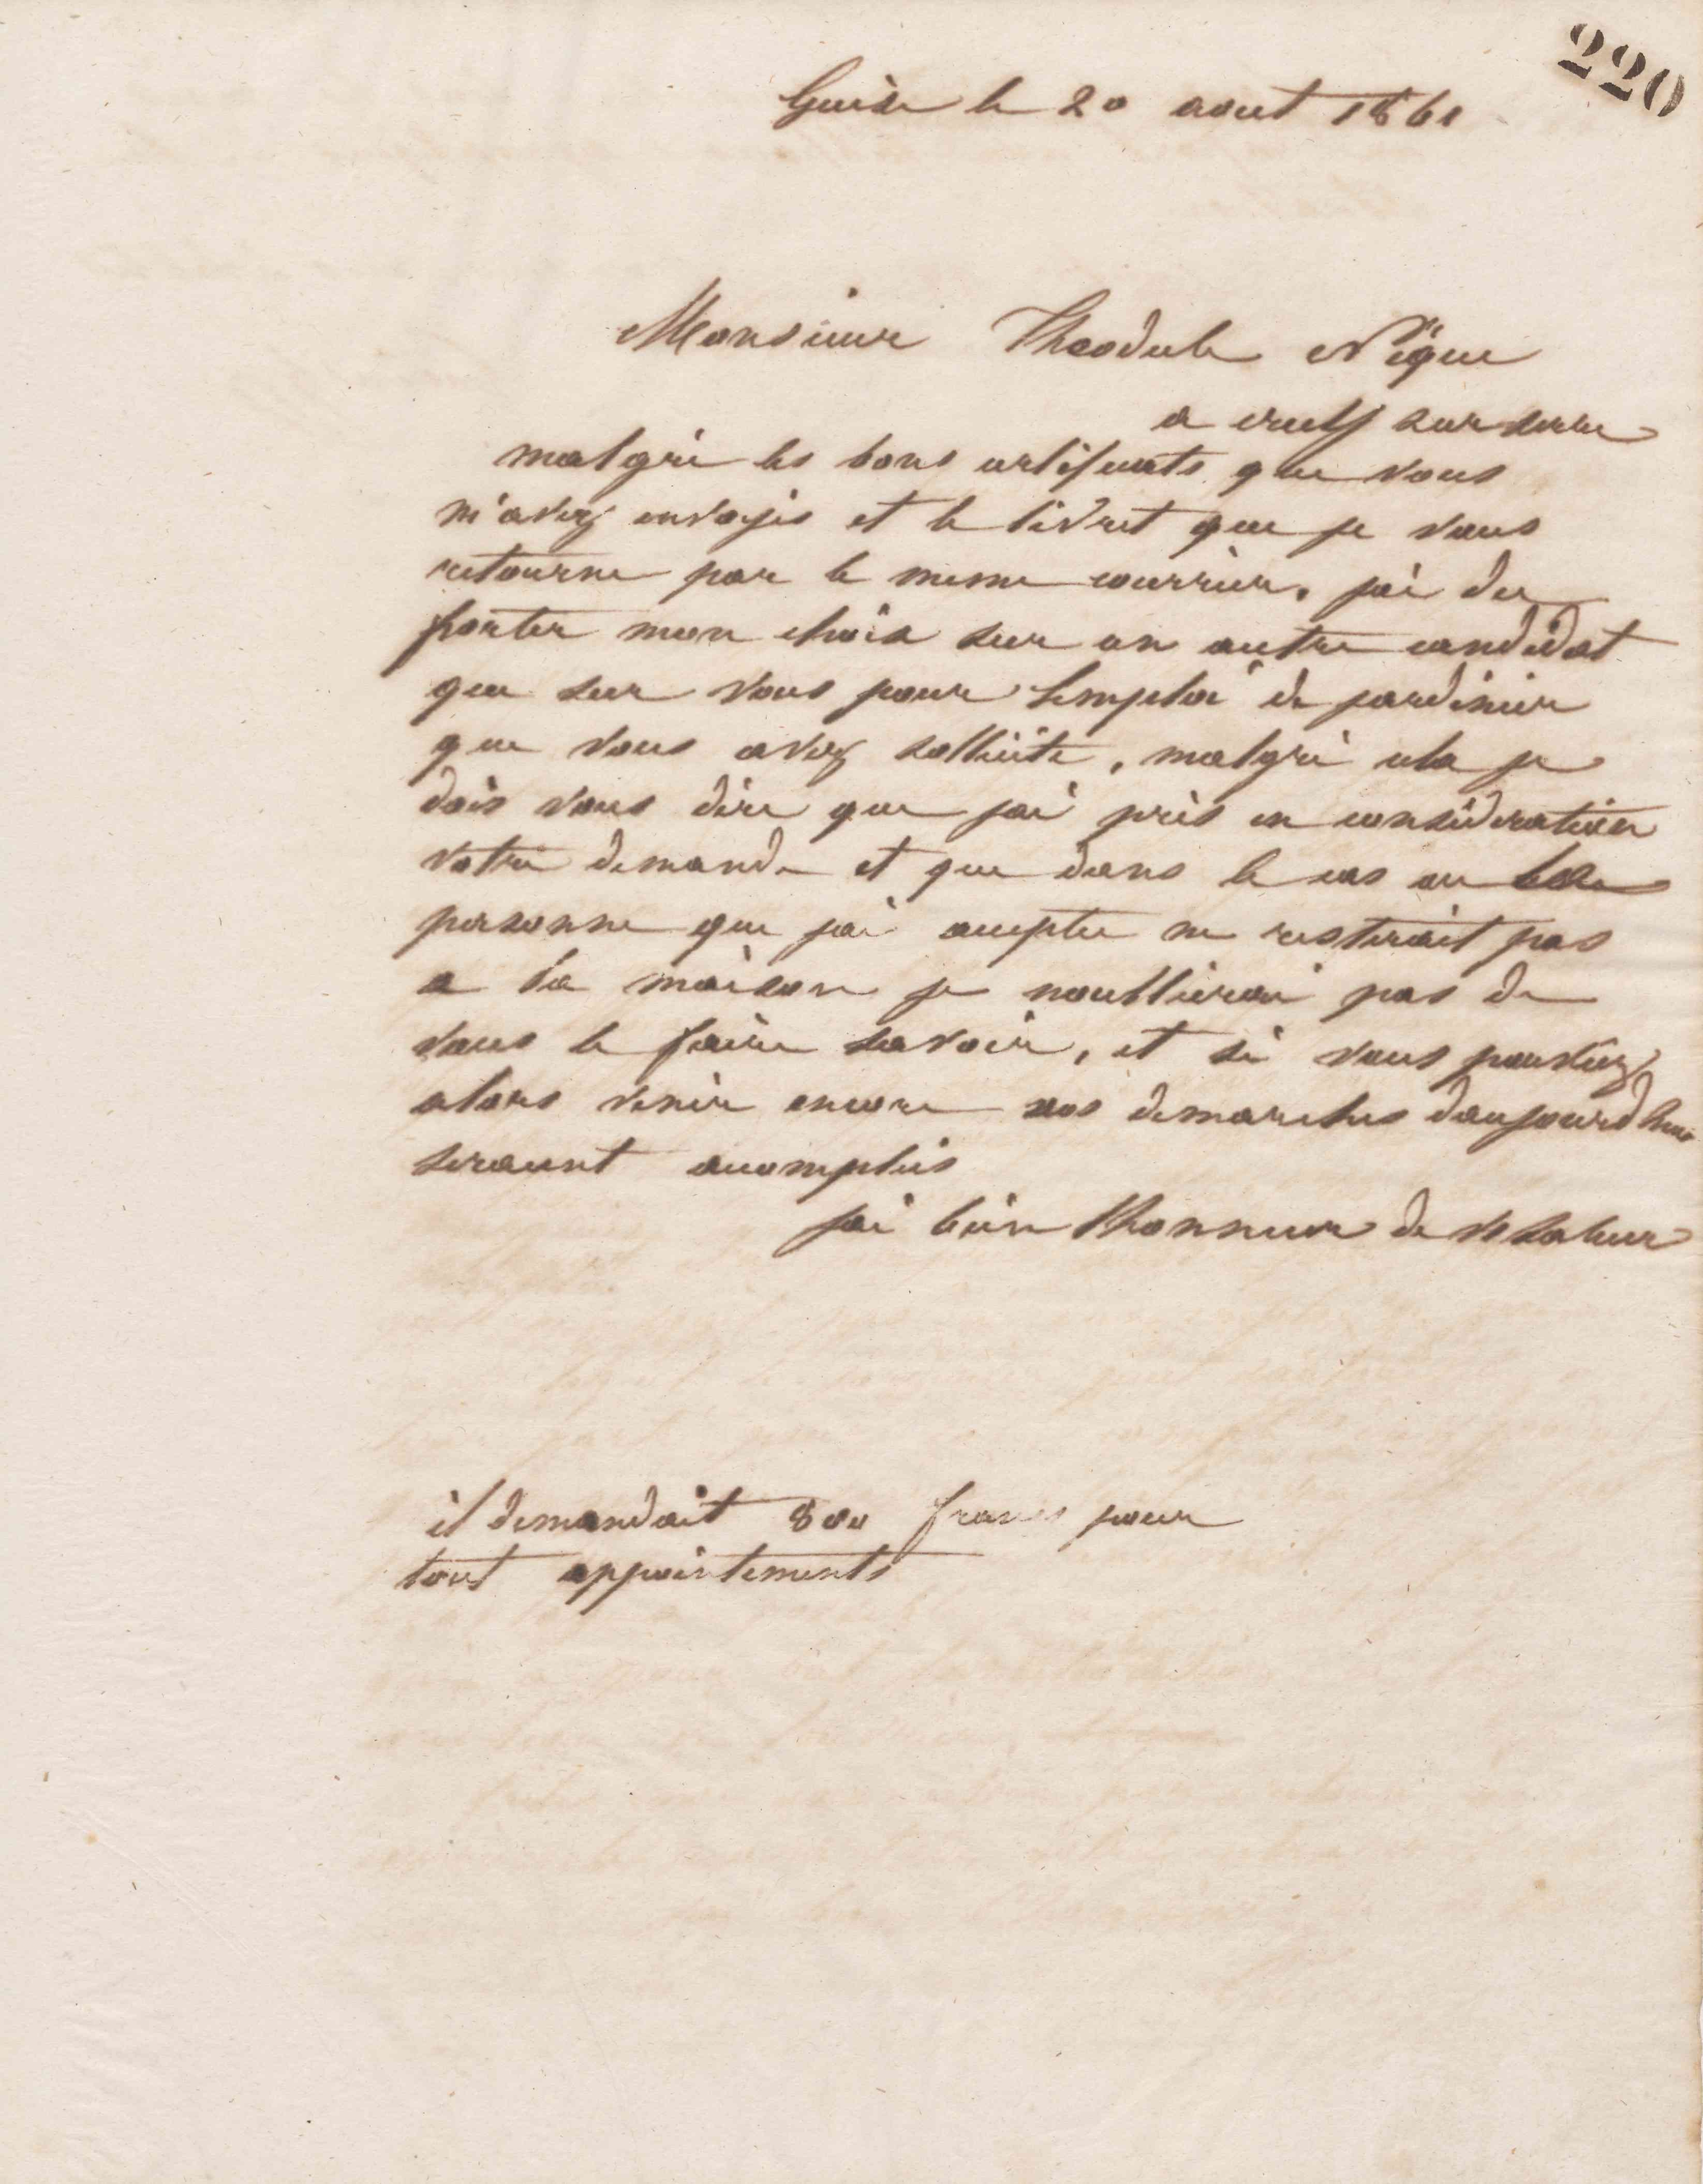 220
Guise le 20 aout 1861
Monsieur Theodule Nique
a sur serre
malgré les bons certificats que vous
m'avez envoyés et le livret que je vous
retourne par le meme courrier, jai du
porter mon choix sur un autre candidat
que sur vous pour lemploi de jardinier
que vous avez sollicité, malgré cela je
dois vous dire que jai pris en consideration
votre demande et que dans le cas ou la
personne que jai acceptee ne resterait pas
a la maison je noublierai pas de
vous le faire savoir, et si vous pouviez
alors venir encore vos demarches daujourdhui
seraient accomplies
jai bien lhonneur de vs saluer
il demandait 800 francs pour
tout appointements